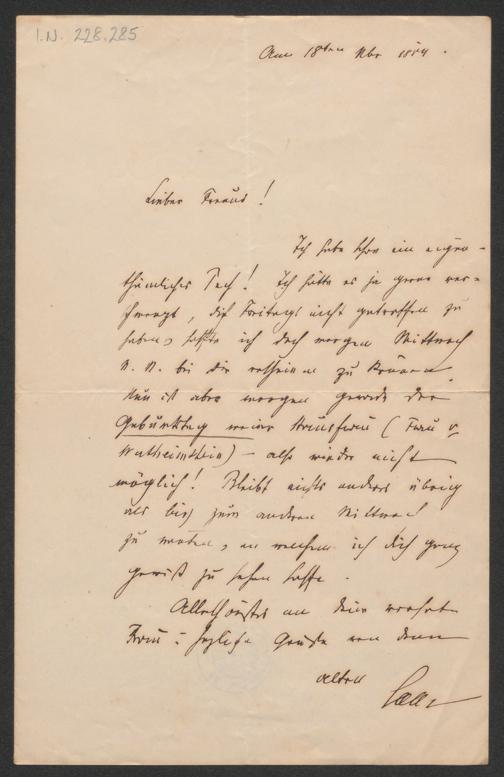 I.N. 228.285
Am 18ten Nbr 1884.
Lieber Freund!
Ich habe schon ein eigen-
thümliches Pech! Ich hätte es ja gerne ver-
schmerzt, dich Freitags nicht getroffen zu
haben, hoffte ich doch morgen Mittwoch
N. M. bei dir erscheinen zu können.
Nun ist aber morgen gerade der
Geburtstag meiner Hausfrau (Frau v.
Wertheimstein) – also wieder nicht
möglich! Bleibt nichts anders übrig
als bis zum anderen Mittwoch
zu warten, an welchem ich dich ganz
gewiß zu sehen hoffe.
Allerschönstes an deine verehrte
Frau u. herzliche Grüße von deinem
alten
Saar